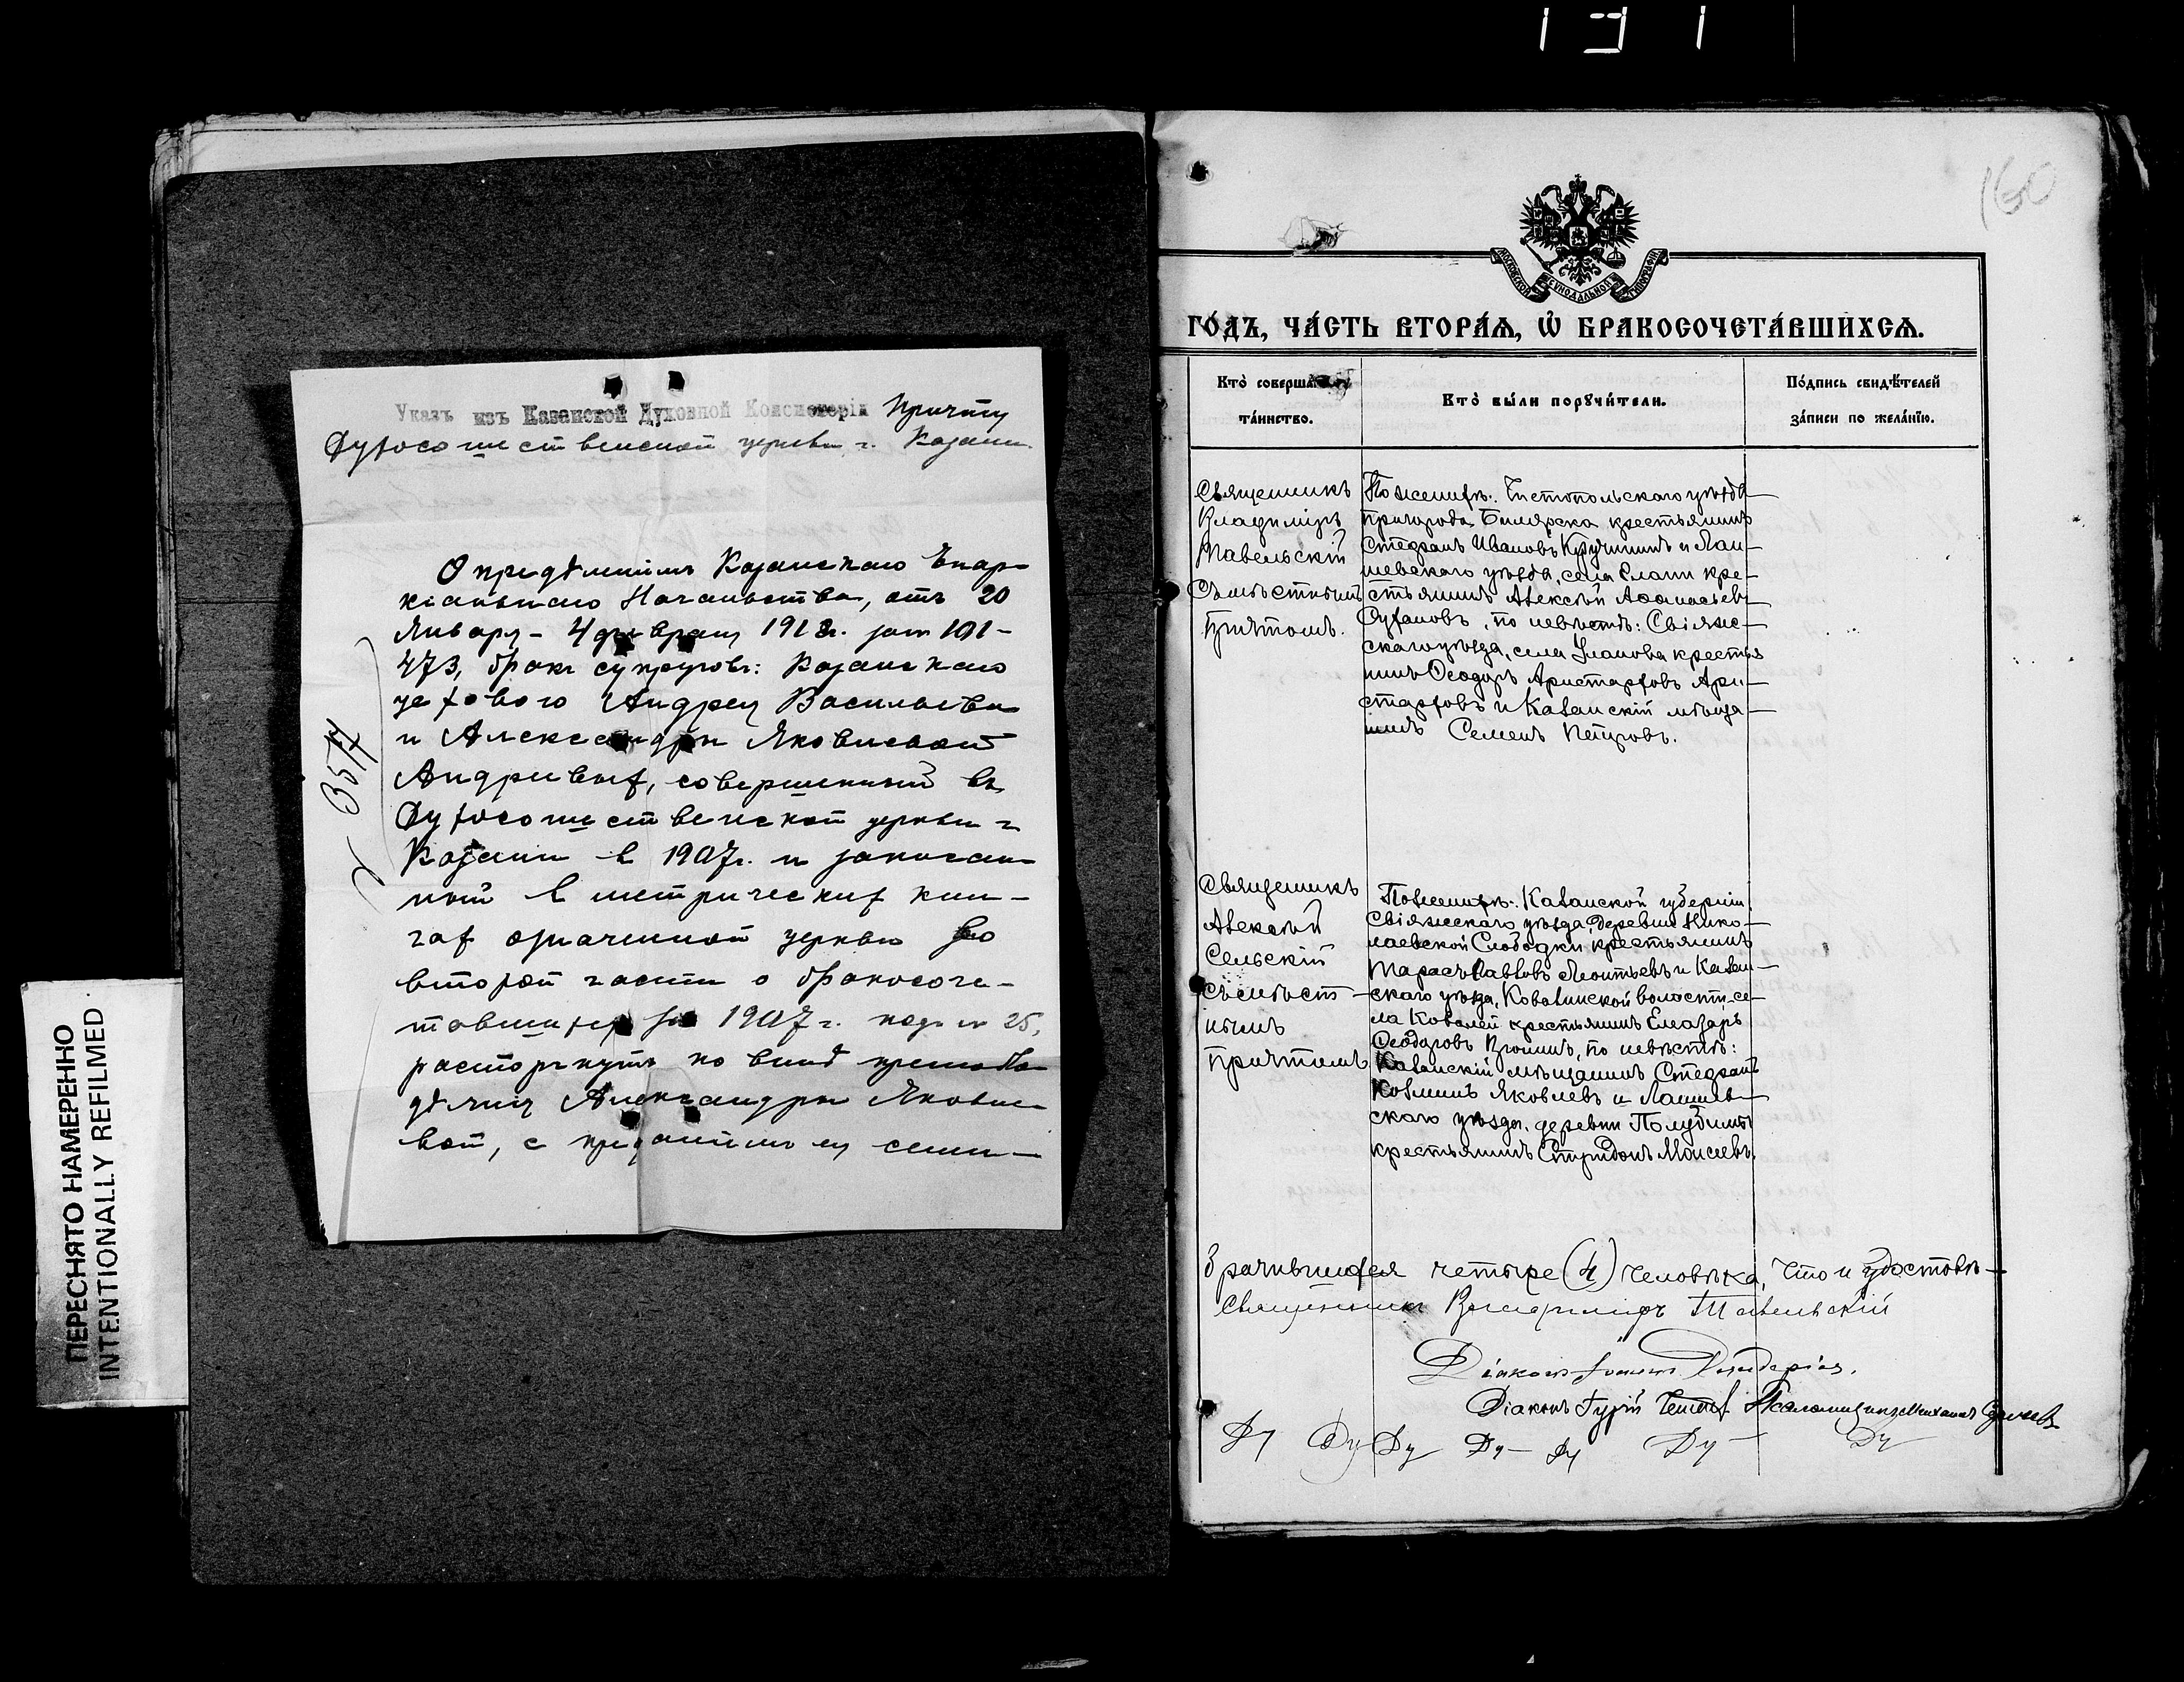 191
ПЕРЕСНЯТО НАМЕРЕННО
INTENTIONALLY REFILMED
Указъ изъ Казанской Духовной Консисторіи Причту
Духосошественской церкви г. Казани.
3577
Опредѣленіемъ Казанскаго Епар-
хіальнаго Начальства, отъ 20
Января - 4 февраля 1913г. за № 101-
473, бракъ супруговъ: Казанскаго
цехового Андрея Васильева
и Александры Яковлевой
Андреевыхъ, совершенный въ
Духосошественской церкви г.
Казани въ 1907г. и записан-
ный въ метрическихъ кни-
гахъ означенной церкви во
второй части о бракосоче-
тавшихся за 1907 г. подъ № 25,
расторгнутъ по винѣ прелюбо-
дѣянія Александры Яковле-
вой, съ преданіемъ ея семи-
160
МОСКОВСКОЙ СѴНОДАЛЬНОЙ ТИПОГРАФІИ
ГО́ДЪ, ЧА́СТЬ ВТОРА́Ѧ, Ѽ БРАКОСОЧЕТА́ВШИХСѦ.
Кто̀ соверша́лъ
та́инство.
Кто̀ бы́ли порꙋчи́тели.
По́дпись свидѣ́телей
за́писи по жела́нїю.
Священникъ
Владиміръ
Павельскій
Съ мѣстнымъ
причтомъ.
По женихѣ: Чистопольскаго уѣзда
пригорода Билярска крестьянинъ
Стефанъ Ивановъ Кручининъ и Лаи-
шевскаго уѣзда, села Елани кре-
стьянинъ Алексѣй Афанасьевъ
Суфановъ, по невѣстѣ: Свіяж-
скаго уѣзда, села Уланова крестья
нинъ Ѳеодоръ Аристарховъ Ари-
старховъ и Казанскій мѣща-
нинъ Семенъ Петровъ.
Священникъ
Алексѣй
Сельскій
съ мѣст-
нымъ
причтомъ
По женихѣ: Казанской губерніи
Свіяжскаго уѣзда, деревни Нико-
лаевской Слободки крестьянинъ
Тарасъ Павловъ Леонтьевъ и Казан-
скаго уѣзда, Ковалинской волости се-
ла Ковалей крестьянинъ Елеазаръ
Ѳеодоровъ Изюминъ, по невѣстѣ:
Казанскій мѣщанинъ Стефанъ
Козминъ Яковлевъ и Лаишев-
скаго уѣзда, деревни
крестьянинъ Спиридонъ Моисеевъ.
Брачившихся четыре (4) человѣка, что и удостовѣ-
Священникъ Владиміръ Павельскій
Діаконъ Іоаннъ
Діаконъ Гурій Псаломщикъ Михаилъ
Ду Ду Ду Ду Ду Ду Ду